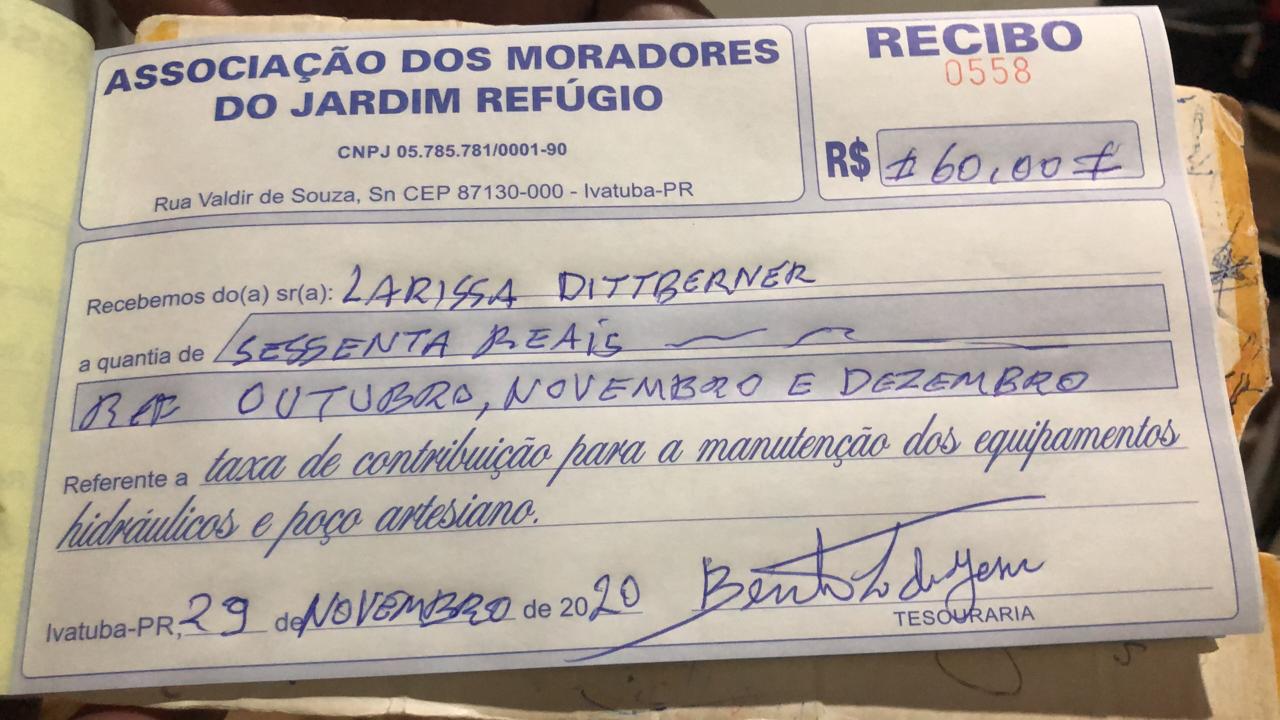 ASSOCIAÇÃO DOS MORADORES
DO JARDIM REFÚGIO
CNPJ 05.785.781/0001-90
Rua Valdir de Souza, Sn CEP 87130-000 - Ivatuba-PR
RECIBO
0558
R$ 60,00
Recebemos do(a) sr(a): LARISSA DITTBERNER
a quantia de SESSENTA REAIS
REF OUTUBRO, NOVEMBRO E DEZEMBRO
Referente a taxa de contribuição para a manutenção dos equipamentos
hidráulicos e poço artesiano.
Ivatuba-PR, 29 de NOVEMBRO de 2020
TESOURARIA